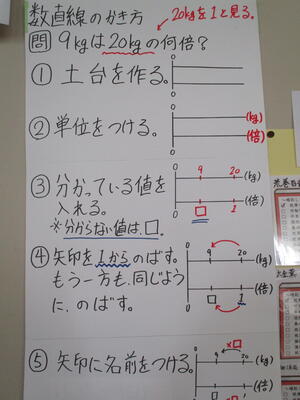 数直線のかき方
20kgを1と見る。
問 9kgは20kgの何倍?
① 土台を作る。
0
0
② 単位をつける。
0 (kg)
0 (倍)
③ 分かっている値を
入れる。
※分からない値は、□。
0 9 20 (kg)
0 □ 1 (倍)
④ 矢印を1からのばす。
もう一方も、同じよう
に、のばす。
0 9 20 (kg)
0 □ 1 (倍)
⑤ 矢印に名前をつける。
×□
0 9 20 (kg)
(倍)